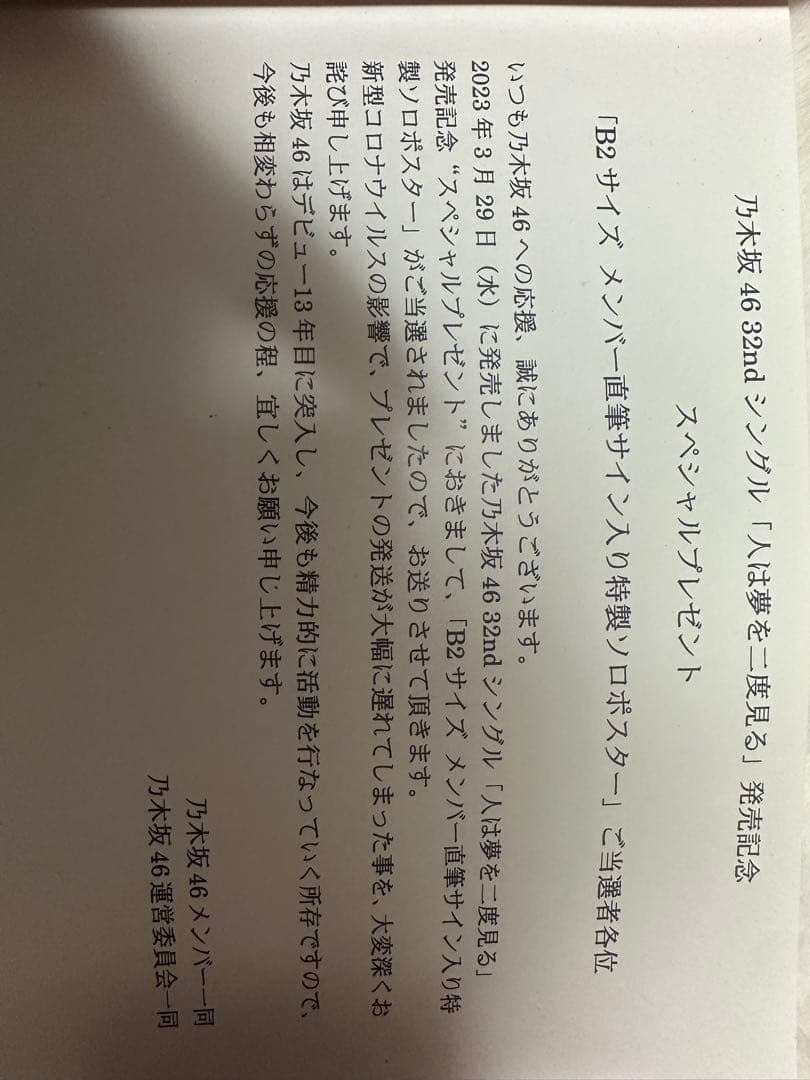 乃木坂 46 32nd シングル「人は夢を二度見る」発売記念
スペシャルプレゼント
「B2 サイズ メンバー直筆サイン入り特製ソロポスター」ご当選者各位
いつも乃木坂 46 への応援、誠にありがとうございます。
2023 年 3 月 29 日（水）に発売しました乃木坂 46 32nd シングル「人は夢を二度見る」
発売記念 “スペシャルプレゼント” におきまして、「B2 サイズ メンバー直筆サイン入り特
製ソロポスター」がご当選されましたので、お送りさせて頂きます。
新型コロナウイルスの影響で、プレゼントの発送が大幅に遅れてしまった事を、大変深くお
詫び申し上げます。
乃木坂 46 はデビュー13 年目に突入し、今後も精力的に活動を行なっていく所存ですので、
今後も相変わらずの応援の程、宜しくお願い申し上げます。
乃木坂 46 メンバー一同
乃木坂 46 運営委員会一同